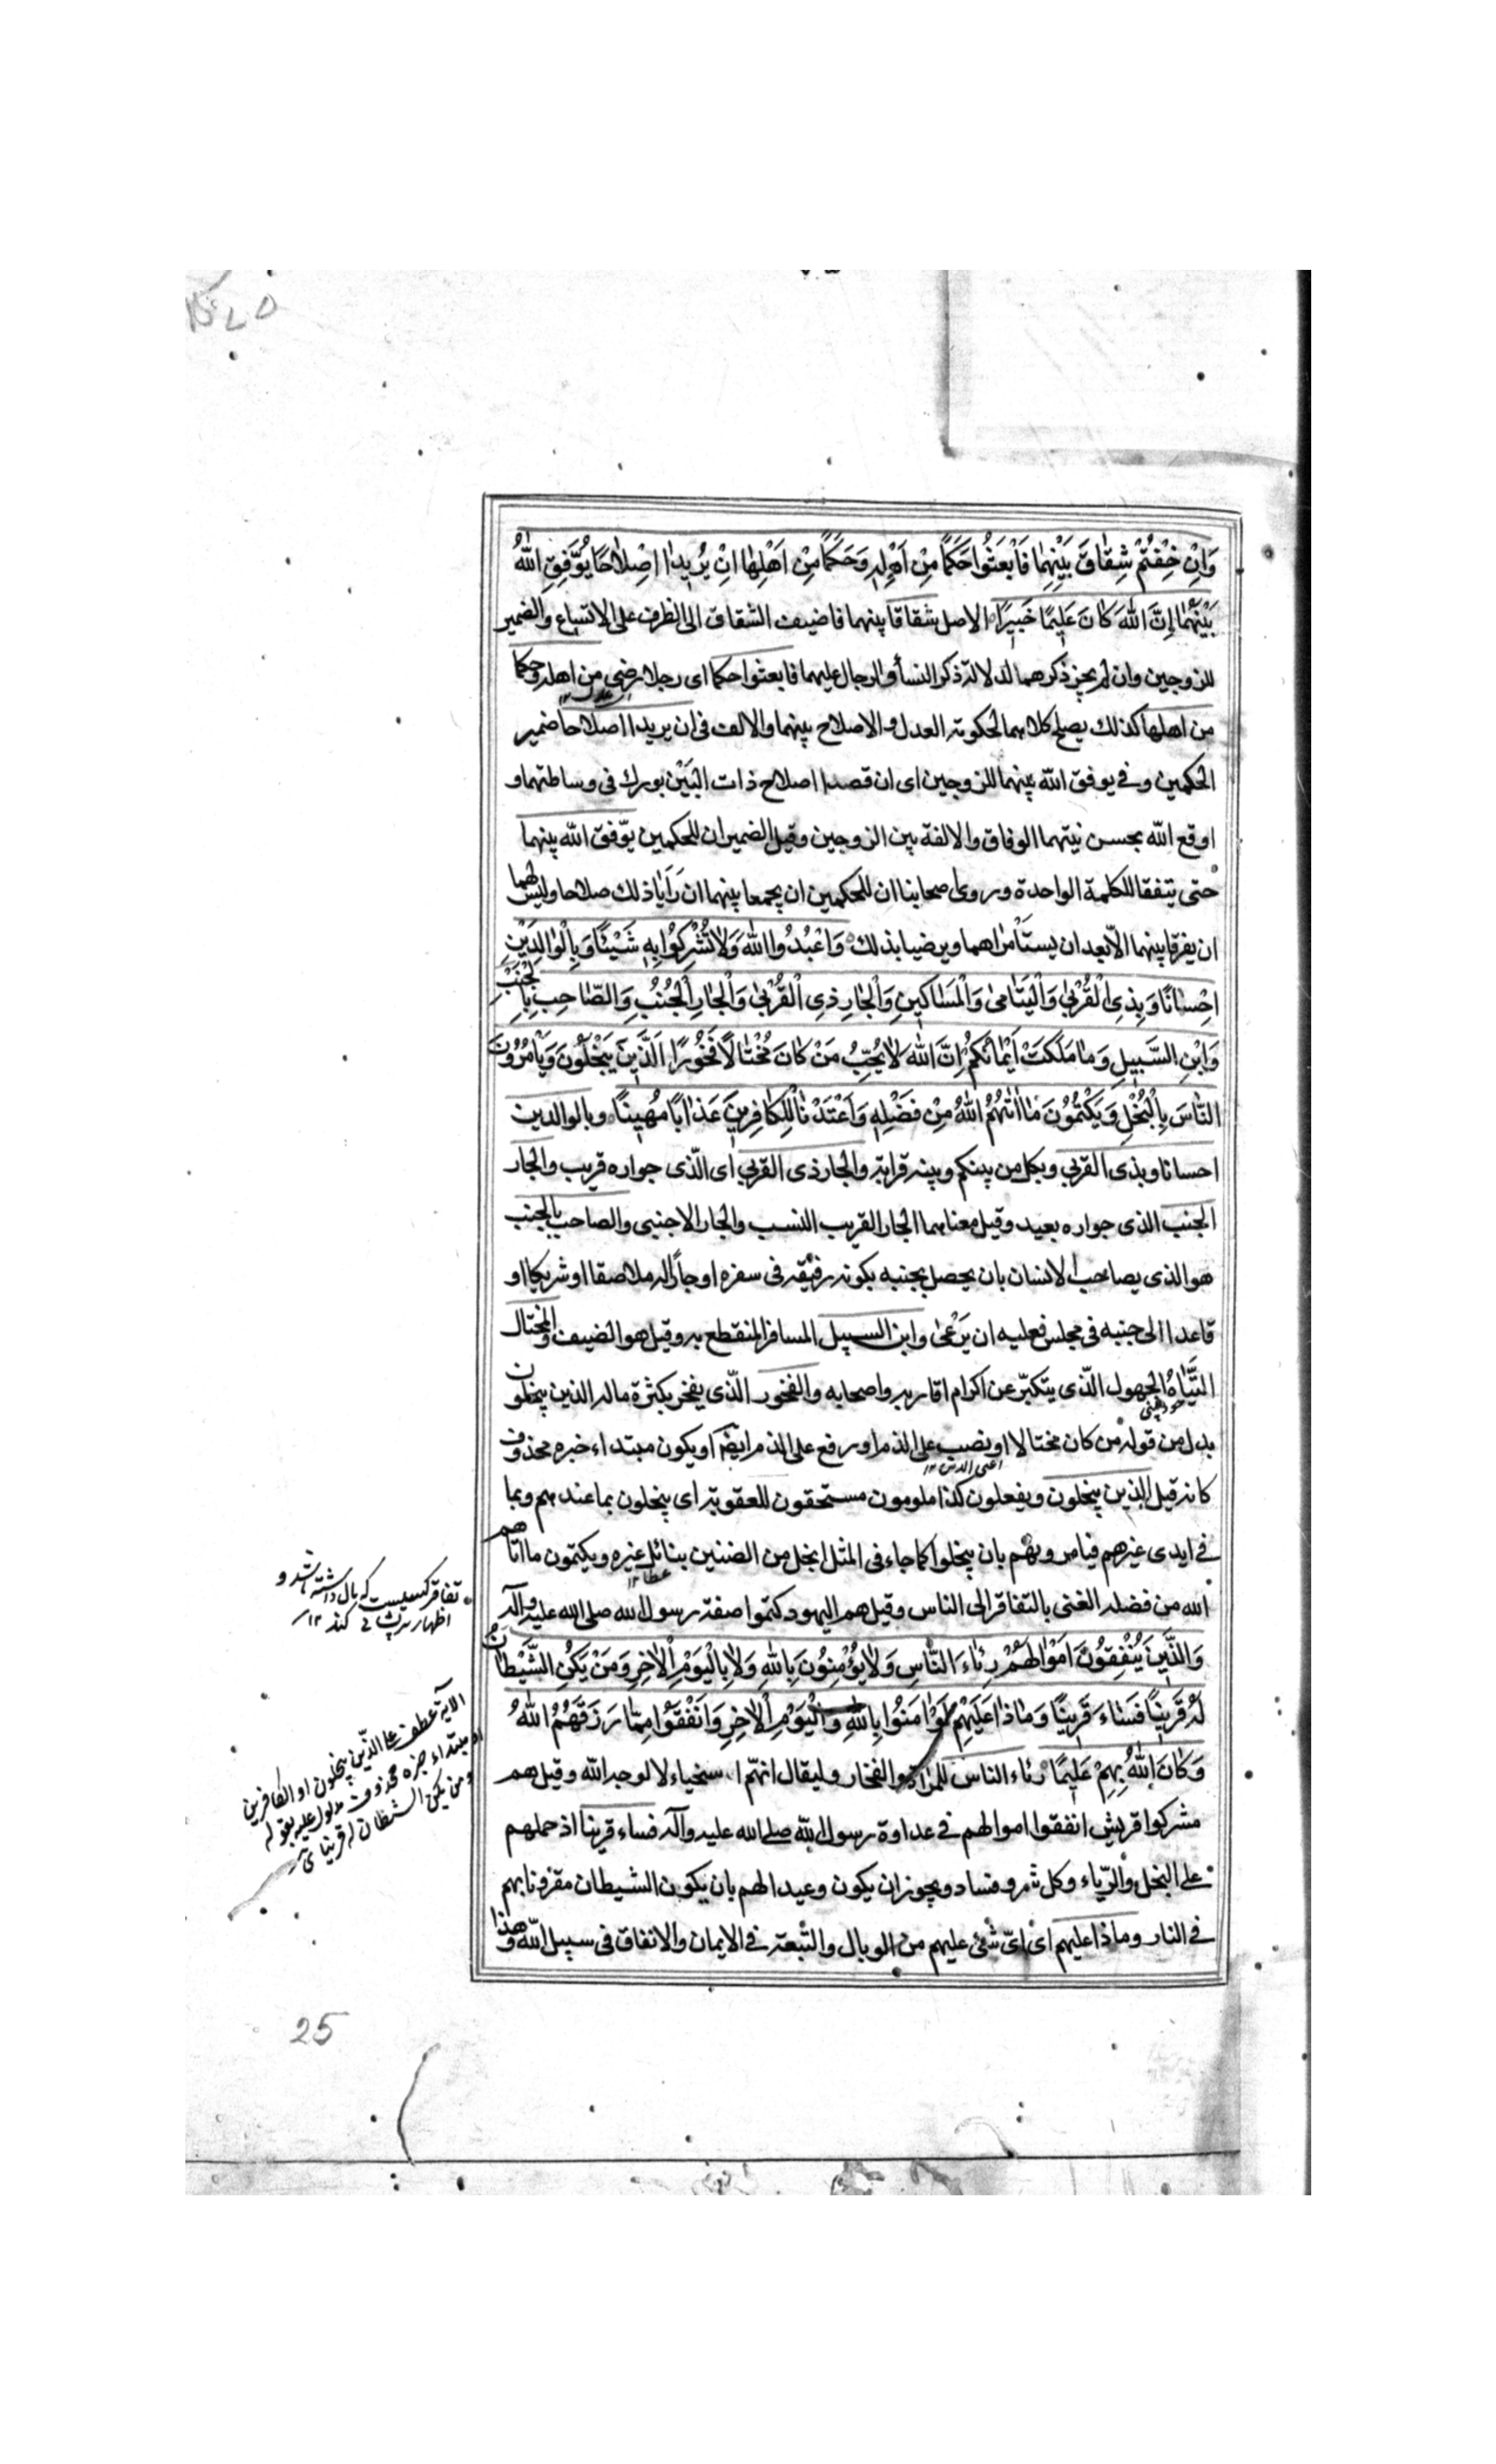 وَاِنْ خِفْتُمْ شِقٰاقَ بَيْنِهِمٰا فَابْعَثُوا حَكَمًا مِنْ اَهْلِهِ وَحَكَمًا مِنْ اَهْلِهٰا اِنْ يُرِيدٰا اِصْلٰاحًا يُوَفِّقِ اللهُ
بَيْنَهُمٰا اِنَّ اللهَ كٰانَ عَلِيمًا خَبِيرًا الاصل شقاقا بينهما فاضيف الشقاق الى الظرف على الاتساع والضمير
للزوجين وان لم يجز ذكرهما لدلالة ذكر النساء والرجال عليهما فابعثوا حكما اى رجلا رضى من اهله وحكما
من اهلها كذلك يصلح كلاهما لحكومة العدل والاصلاح بينهما والالف فى ان يريدا اصلاحا ضمير
الحكمين وفى يوفق الله بينهما للزوجين اى ان قصدا اصلاح ذات البَيْن بورك فى وساطتهما و
اوقع الله بحسن نيتهما الوفاق والالفة بين الزوجين وقيل الضميران للحكمين يوّفق الله بينهما
حتى يتفقا للكلمة الواحدة وروى اصحابنا ان للحكمين ان يجمعا بينهما ان رَاَيَا ذلك صلاحا وليس لهما
ان يفرقا بينهما الاّ بعد ان يستأمراهما ويرضيا بذلك وَاعْبُدُوا اللهَ وَلٰا تُشْرِكُوا بِهِ شَيْئًا وَبِالْوٰالِدَيْنِ
اِحْسٰانًا وَبِذِى الْقُرْبٰى وَالْيَتٰامٰى وَالْمَسٰاكِينِ وَالْجٰارِ ذِى الْقُرْبٰى وَالْجٰارِ الْجُنُبِ وَالصّٰاحِبِ بِالْجَنْبِ
وَابْنِ السَّبِيلِ وَمٰا مَلَكَتْ اَيْمٰانُكُمْ اِنَّ اللهَ لٰا يُحِبُّ مَنْ كٰانَ مُخْتٰالًا فَخُورًا اَلَّذِينَ يَبْخَلُونَ وَيَأْمُرُونَ
النّٰاسَ بِالْبُخْلِ وَيَكْتُمُونَ مٰا اٰتٰهُمُ اللهُ مِنْ فَضْلِهِ وَاَعْتَدْنٰا لِلْكٰافِرِينَ عَذٰابًا مُهِينًا وبالوالدين
احسانا وبذى القربى وبكل من بينكم وبينه قرابة والجار ذى القربى اى الّذى جواره قريب والجار
الجنب الذى جواره بعيد وقيل معناهما الجار القريب النسب والجار الاجنبى والصاحب بالجنب
هو الذى يصاحب الانسان بان يحصل بجنبه بكونه رفيقه فى سفره او جاراً له ملاصقا او شريكا او
قاعدا الى جنبه فى مجلس فعليه ان يَرْعٰى وابن السبيل المسافر المنقطع به وقيل هو الضيف والمختال
التَّيّٰاهُ الجهول الّذى يتكبّر عن اكرام اقاربه واصحابه والفخور الّذى يفخر بكثرة ماله الذين يبخلون
بدل من قوله من كان مختالا او نصب على الذم او رفع على الذم ايضا او يكون مبتداء خبره محذوف
اعنى الذين ١٢
كانه قيل الذين يبخلون ويفعلون كذا ملومون مستحقون للعقوبة اى يبخلون بما عندهم وبما
فى ايدى غيرهم فيامرونهم بان يبخلوا كما جاء فى المثل ابخل من الضنين بنائل غيره ويكتمون ما اتاهم
عطا ١٢
الله من فضله الغنى بالتفاقر الى الناس وقيل هم اليهود كتموا صفة رسول الله صلى الله عليه وآله
وَالَّذِينَ يُنْفِقُونَ اَمْوٰالَهُمْ رِئٰاءَ النّٰاسِ وَلٰا يُؤْمِنُونَ بِاللهِ وَلٰا بِالْيَوْمِ الْاٰخِرِ وَمَنْ يَكُنِ الشَّيْطٰانُ
لَهُ قَرِينًا فَسٰاءَ قَرِينًا وَمٰا ذٰا عَلَيْهِمْ لَوْ اٰمَنُوا بِاللهِ وَالْيَوْمِ الْاٰخِرِ وَاَنْفَقُوا مِمّٰا رَزَقَهُمُ اللهُ
وَكٰانَ اللهُ بِهِمْ عَلِيمًا رئاء الناس للمراة والفخار وليقال انهّم اسخياء لا لوجه الله وقيل هم
مشركوا قريش انفقوا اموالهم فى عداوة رسول الله صلى الله عليه وآله فساء قرينا اذ حملهم
على البخل والرّياء وكل شر وفساد ويجوز ان يكون وعيدا لهم بان يكون الشيطان مقرونا بهم
فى النار وماذا عليهم اى اىّ شئ عليهم من الوبال والتّبعة فى الايمان والانفاق فى سبيل اللّه وهذا
تفاقر كسيست كه مال داشته باشد و
اظهار كند ١٢
الاية عطف على الّذين يبخلون او الكافرين
او مبتداء خبره محذوف مدلول عليه بقوله
ومن يكن الشيطان له قرينا
25